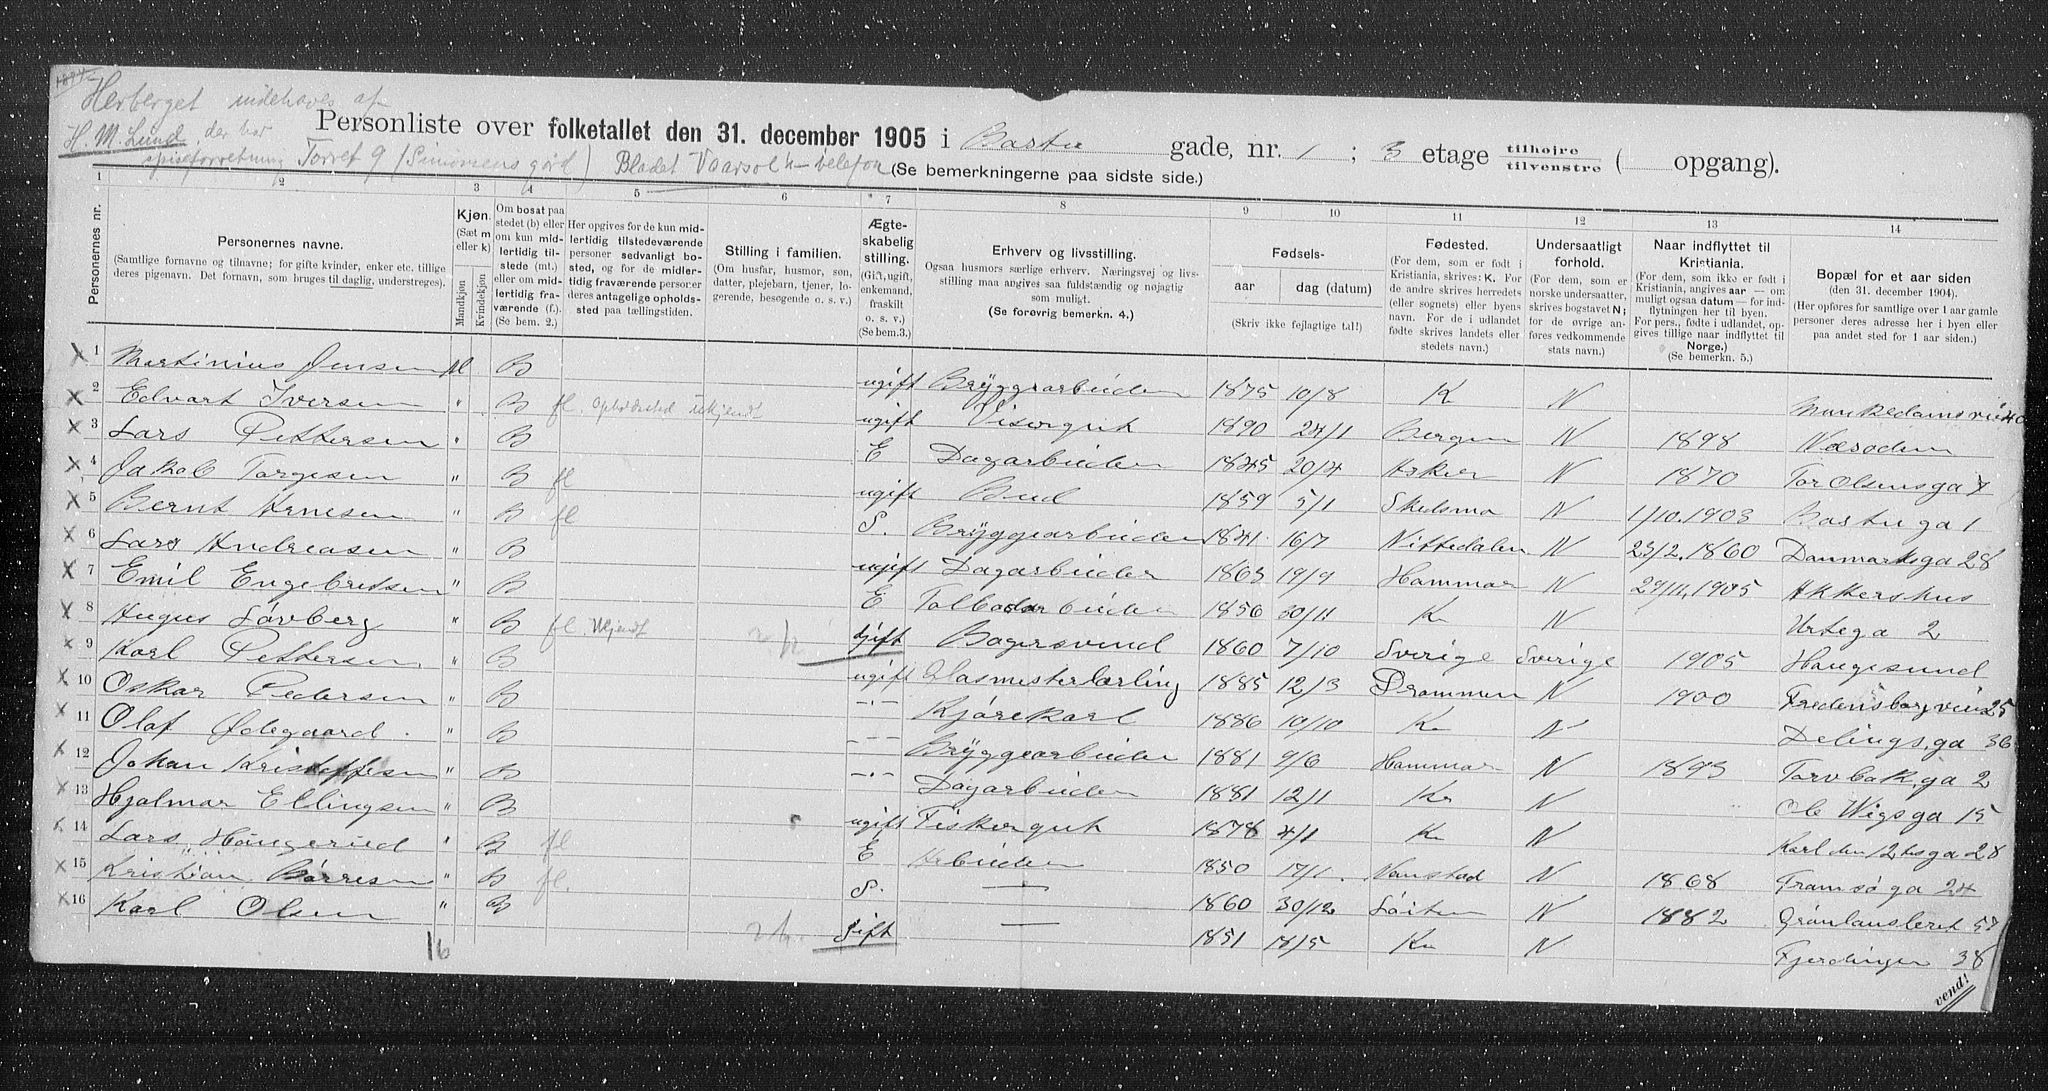 Herberget indehaves af
H. M. Lund der har
spiseforretning Torvet 9 (Simonsens gård) Bladet Vaarsol
Personliste over folketallet den 31. december 1905 i Bastu gade, nr. 1 ; 3 etage tilhøjre tilvenstre ( opgang).
(Se bemerkningerne paa sidste side.)
1 2 3 4 5 6 7 8 9 10 11 12 13 14
Personernes nr.
Personernes navne.
(Samtlige fornavne og tilnavne; for gifte kvinder, enker etc. tillige
deres pigenavn. Det fornavn, som bruges til daglig, understreges).
Kjøn.
(Sæt m
eller k)
Mandkjøn
Kvindekjøn
Om bosat paa
stedet (b) eller
om kun mid-
lertidig til-
stede (mt.)
eller om mid-
lertidig fra-
værende (f.).
(Se bem. 2.)
Her opgives for de kun mid-
lertidig tilstedeværende
personer sedvanlig bo-
sted, og for de midler-
tidig fraværende personer
deres antagelige opholds-
sted paa tællingstiden.
Stilling i familien.
(Om husfar, husmor, søn,
datter, plejebarn, tjener, lo-
gerende, besøgende o. s. v.)
Ægte-
skabelig
stilling.
(Gift, ugift,
enkemand,
fraskilt
o. s. v.)
(Se bem.3.)
Erhverv og livsstilling.
Ogsaa husmors særlige erhverv. Næringsvej og livs-
stilling maa angives saa fuldstændig og nøjagtig
som muligt.
(Se forøvrig bemerkn. 4.)
Fødsels-
aar dag (datum)
(Skriv ikke fejlagtige tal!)
Fødested.
(For dem, som er født i
Kristiania, skrives: K. For
de andre skrives herredets
(eller sognets) eller byens
navn. For de i udlandet
fødte skrives landets eller
stedets navn.)
Undersaatligt
forhold.
(For dem, som er
norske undersaatter,
skrives bogstavet N;
for de øvrige an-
føres vedkommende
stats navn.)
Naar indflyttet til
Kristiania.
(For dem, som ikke er født i
Kristiania, angives aar — om
muligt ogsaa datum — for ind-
flytningen her til byen.
For pers., fødte i udlandet, op-
gives tillige naar indflyttet til
Norge.)
(Se bemerkn. 5.)
Bopæl for et aar siden
(den 31. december 1904.)
(Her opføres for samtlige over 1 aar gamle
personer deres adresse her i byen eller
paa andet sted for 1 aar siden.)
1 Martinius Jensen M B ugift Bryggearbeider 1875 10/8 K N Munkedamsveien 40
2 Edvart Iversen " B fl. opholdssted ukjendt ugift Visergut 1890 24/1 Bergen N 1898 Næsodden
3 Lars Pettersen " B E Dagarbeider 1845 20/4 Asker N 1870 Tor Olsensga 7
4 Jakob Torgesen " B fl ugift Bud 1859 5/1 Skedsmo N 1/10.1903 Bastuga 1
5 Bernt Arnesen " B fl S. Bryggearbeider 1841 16/7 Nittedalen N 23/2.1860 Danmarksga 28
6 Lars Andreasen " B ugift Dagarbeider 1863 19/9 Hammar N 29/11.1905 Akkershus
7 Emil Engebretsen " B E Tolbodarbeider 1856 30/11 K N Urtega 2
8 August Løvberg " B fl. Ukjendt Gift Bagersvend 1860 7/10 Sverige Sverige 1905 Haugesund
9 Karl Pettersen " B ugift Glasmesterlærling 1885 12/3 Drammen N 1900 Fredensborgveien 25
10 Oskar Pedersen " B -"- Kjørekarl 1886 10/10 K N Delings.ga 36
11 Olaf Ødegaard " B - - - Bryggearbeider 1881 9/6 Hammar N 1893 Torvbak.ga 2
12 Johan Kristoffesen " B -"- Dagarbeider 1881 12/1 Kr N Ole Wigsga 15
13 Hjalmar Ellingsen " B ugift Fiskergut 1878 4/1 K N Karl den 12tes ga 28
14 Lars Haugerud " B fl E Arbeider 1850 17/1 N 1868 Tromsøga 24
15 Kristian Børresen " B fl. S. — 1860 30/12 Løiten N 1882 Grønlansleret
16 Karl Olsen " B gift — 1851 18/5 K N Fjerdingen 38
16
vend!